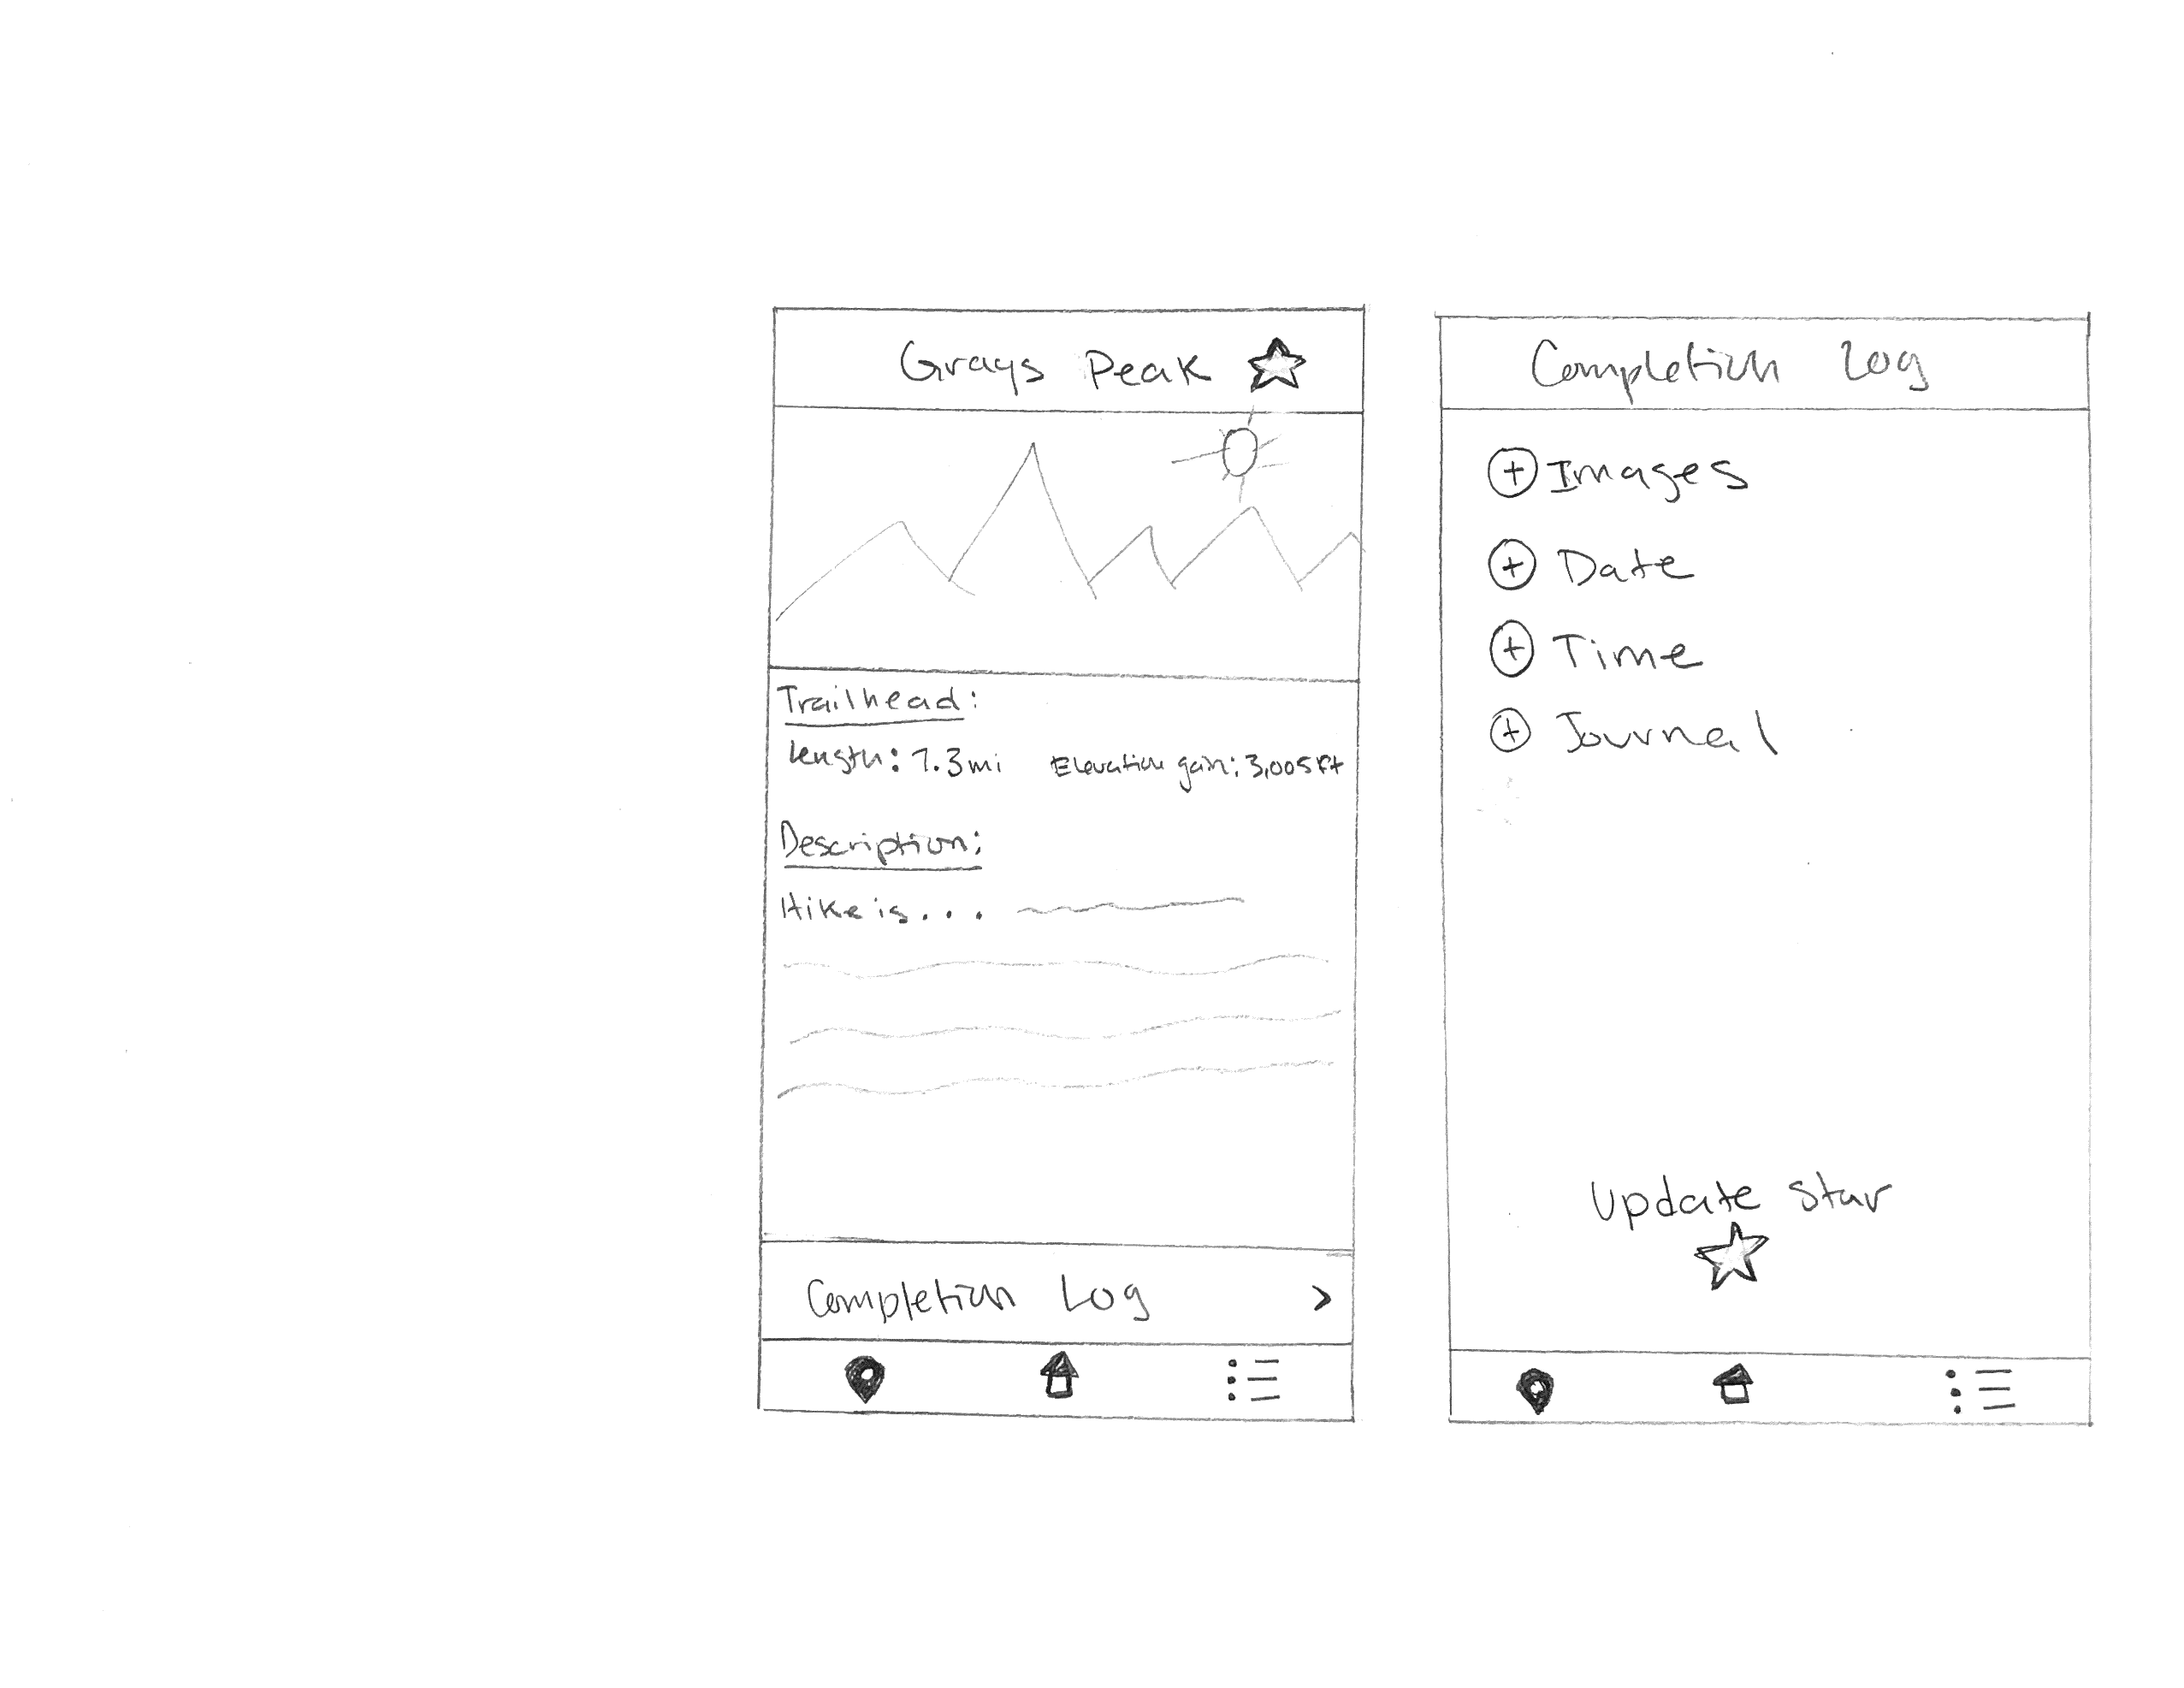 Grays Peak
Trailhead:
Length: 7.3mi Elevation gain: 3,005 ft
Description:
Hike is...
Completion Log >
Completion Log
+ Images
+ Date
+ Time
+ Journal
Update Star